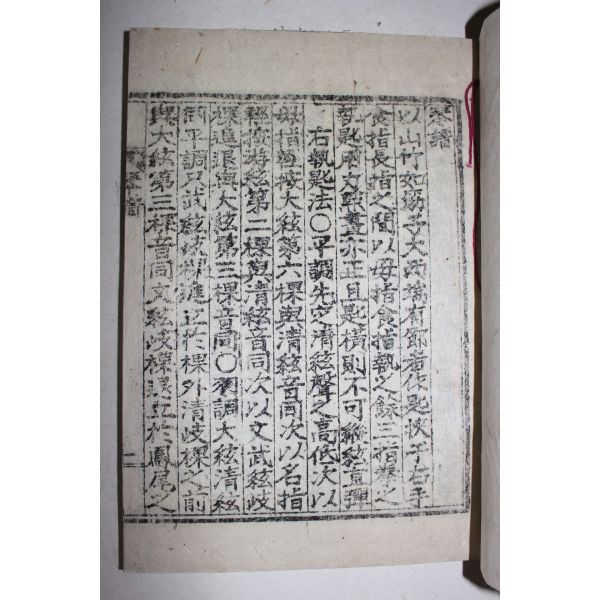 琴譜
以山竹如場子大而端有節者作匙挾于右手
食指長指之間以母指食指執之餘三指擧之
執匙用大點畫亦正且匙橫則不可聯絃直彈
右執匙法○平調先定清絃聲之高低次以
母指按大絃第六棵與清絃音同次以名指
按遊絃第二棵與清絃音同次以文武絃歧
棵進退與大絃第三棵音同○羽調大絃清絃
同平調只武絃歧棵進立於棵外清歧棵之前
與大絃第三棵音同文絃歧棵退立於鳳尾之
二